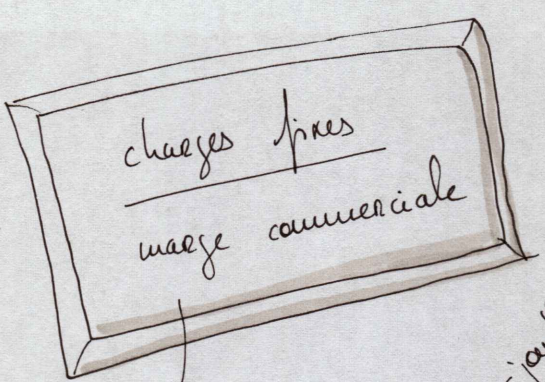 charges fixes
marge commerciale